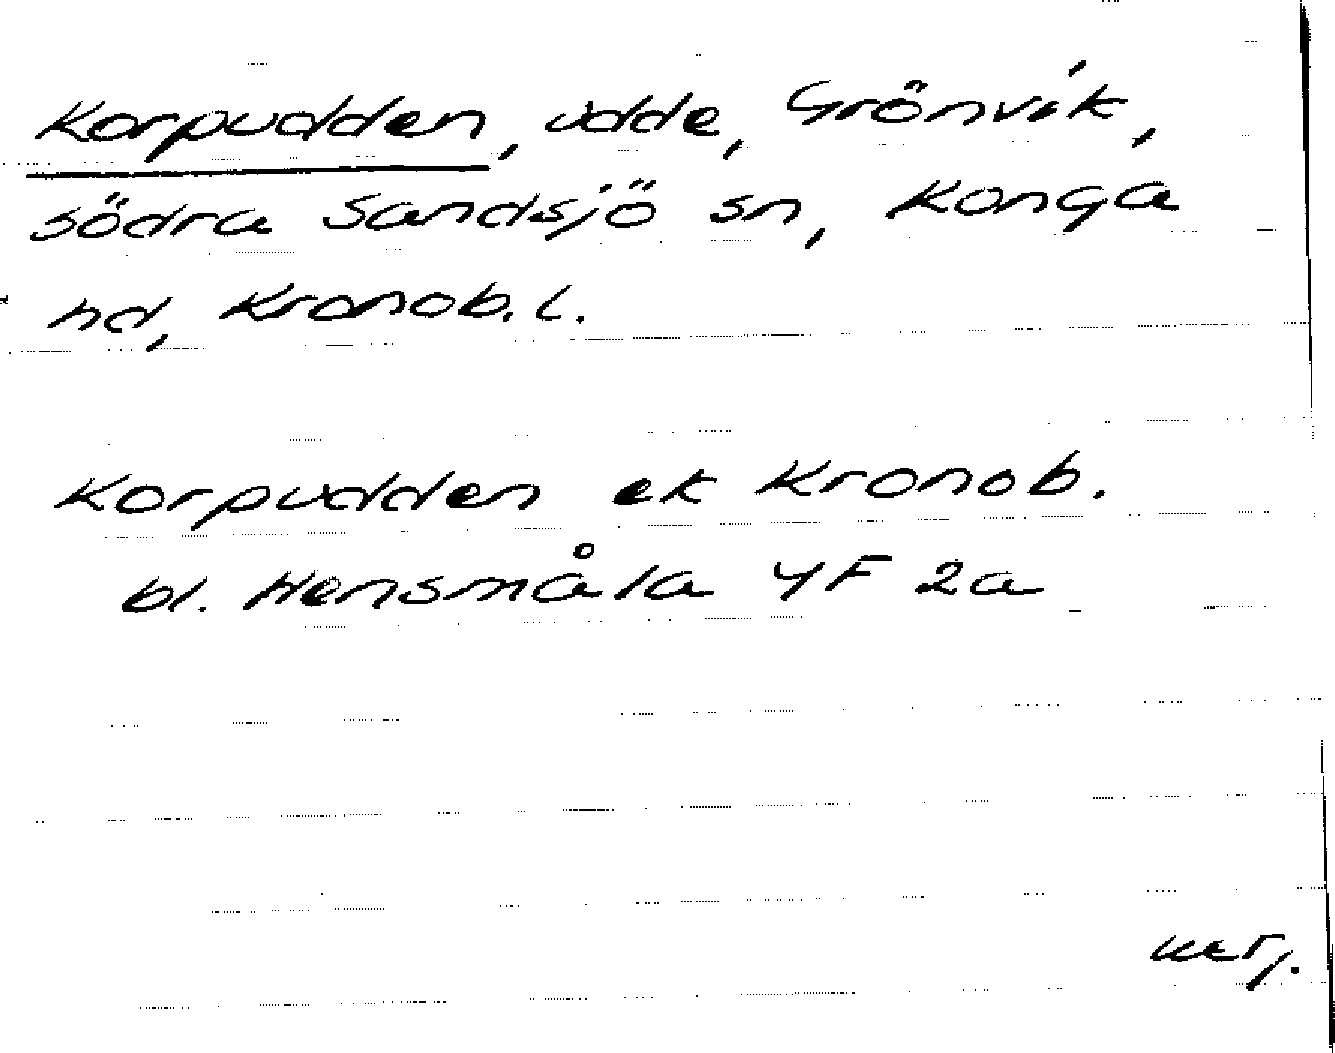 Korpudden, udde, Grönvik,
södra Sandsjö sn, Konga
hd, Kronob. l.
Korpudden ek Kronob.
bl. Hensmåla 4F 2a